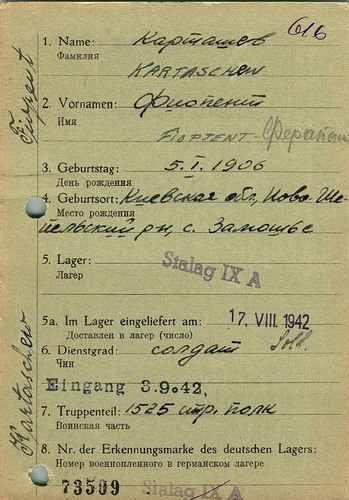 616
1. Name: Карташев
Фамилия
KARTASCHEW
2. Vornamen:
Имя
3. Geburtstag: 5.I.1906
День рождения
4. Geburtsort: Киевская обл, Ново-Ше-
Место рождения
пельский рн, с. Замошье
5. Lager: Stalag IX A
Лагер
5a. Im Lager eingeliefert am: 17. VIII. 1942
Доставлен в лагер (число)
6. Dienstgrad: солдат Sold.
Чин
Eingang 3.9.42.
7. Truppenteil: 1525 стр. полк
Воинская часть
8. Nr. der Erkennungsmarke des deutschen Lagers:
Номер военнопленного в германском лагере
73509 Stalag IX A
Kartaschew